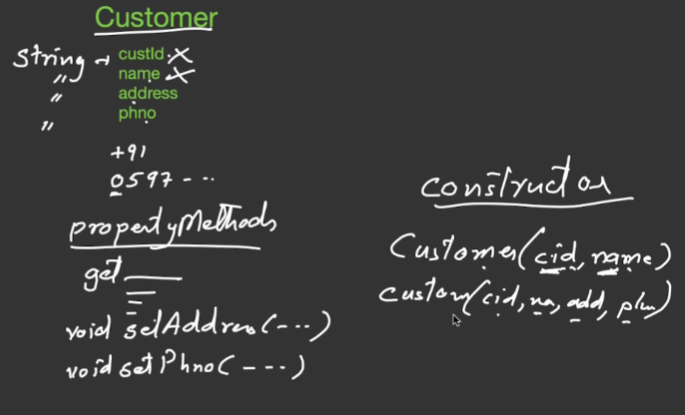 Customer
String → custId.x
" name x
" address
" phno
+91
0597 - ..
propertyMethods
get
void setAddress(---)
void setPhno(----)
constructor
Customer(cid, name)
custom(cid, na, add, phn)